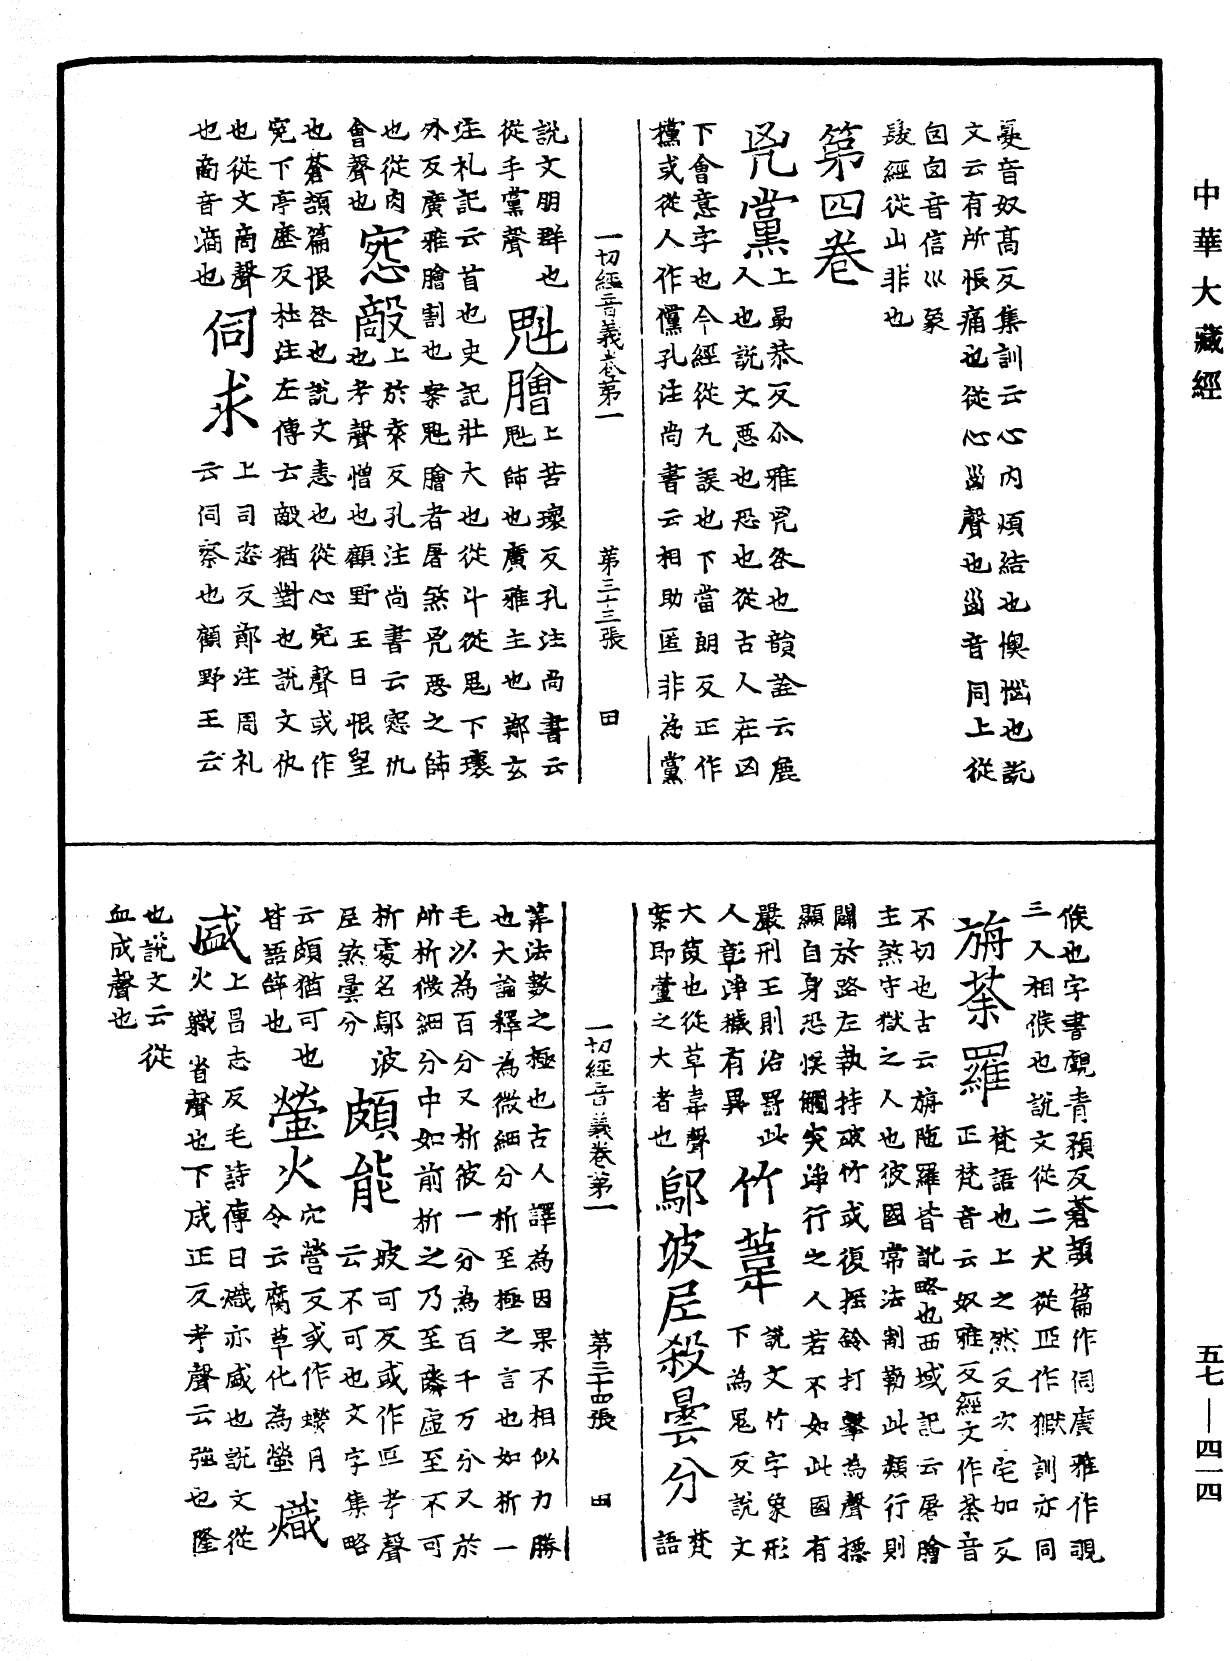 㛴音奴高反集訓云心內煩結也懊惱也說
文云有所恨痛也從心𡿺聲也𡿺音同上從
囟囟音信巛象
髮經從山非也
第四卷
兇黨
上勗恭反尒雅兇咎也韻詮云麁
人也說文惡也恐也從古人在凶
下會意字也今經從九誤也下當朗反正作
攩或從人作儻孔注尚書云相助匿非為黨
一切經音義卷第一 第三十三張 田
說文朋群也
從手黨聲
魁膾
上苦瓌反孔注尚書云
魁師也廣雅主也鄭玄
注札記云首也史記壯大也從斗從鬼下瓌
外反廣雅膾割也案魁膾者屠煞兇惡之師
也從肉
會聲也
㤪敵
上於袁反孔注尚書云㤪仇
也考聲憎也顧野王曰恨望
也蒼頡篇恨咎也說文恚也從心宛聲或作
宛下亭歷反杜注左傳云敵猶對也說文仇
也從文啇聲
也啇音滴也
伺求
上司恣反鄭注周礼
云伺察也顧野王云
候也字書覷青預反蒼頡篇作伺廣雅作覗
三人相候也說文從二犬從𦣞作獄訓亦同
旃荼羅
梵語也上之然反次宅加反
正梵音云奴雅反經文作荼音
不切也古云旃陁羅皆訛略也西域記云屠膾
主煞守獄之人也彼國常法制勒此類行則
闢於路左執持破竹或復搖鈴打擊為聲摽
顯自身恐悞觸突淨行之人若不如此國有
嚴刑王則治罸此
人彰淨穢有異
竹葦
說文竹字象形
下為鬼反說文
大葭也從草韋聲
案即蘆之大者也
鄔波尼殺曇分
梵
語
一切經音義卷第一 第三十四張 田
筭法數之極也古人譯為因果不相似力勝
也大論釋為微細分析至極之言也如析一
毛以為百分又析彼一分為百千万分又於
所析微細分中如前析之乃至鄰虛至不可
析處名鄔波
尼煞曇分
頗能
坡可反或作叵考聲
云不可也文字集略
云頗猶可也
皆語辝也
螢火
穴營反或作蠑月
令云腐草化為螢
熾
盛
上昌志反毛詩傳曰熾亦盛也說文從
火軄省聲也下成正反考聲云強也隆
也說文云從
血成聲也
中華大藏經
五七—四一四